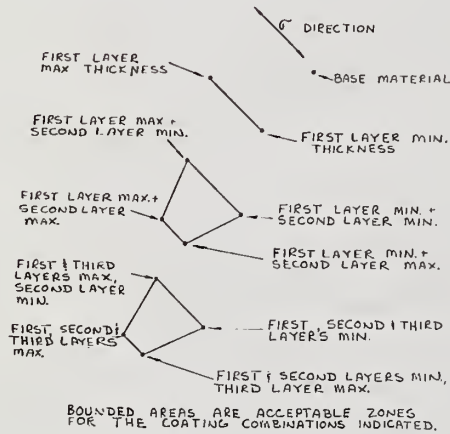 σ DIRECTION
FIRST LAYER
MAX THICKNESS
BASE MATERIAL
FIRST LAYER MAX +
SECOND LAYER MIN.
FIRST LAYER MIN.
THICKNESS
FIRST LAYER MAX.+
SECOND LAYER
MAX.
FIRST LAYER MIN. +
SECOND LAYER MIN.
FIRST LAYER MIN.+
SECOND LAYER MAX.
FIRST & THIRD
LAYERS MAX,
SECOND LAYER
MIN.
FIRST, SECOND &
THIRD LAYERS
MAX.
FIRST, SECOND & THIRD
LAYER'S MIN.
FIRST & SECOND LAYERS MIN.,
THIRD LAYER MAX.
BOUNDED AREAS ARE ACCEPTABLE ZONES
FOR THE COATING COMBINATIONS INDICATED.